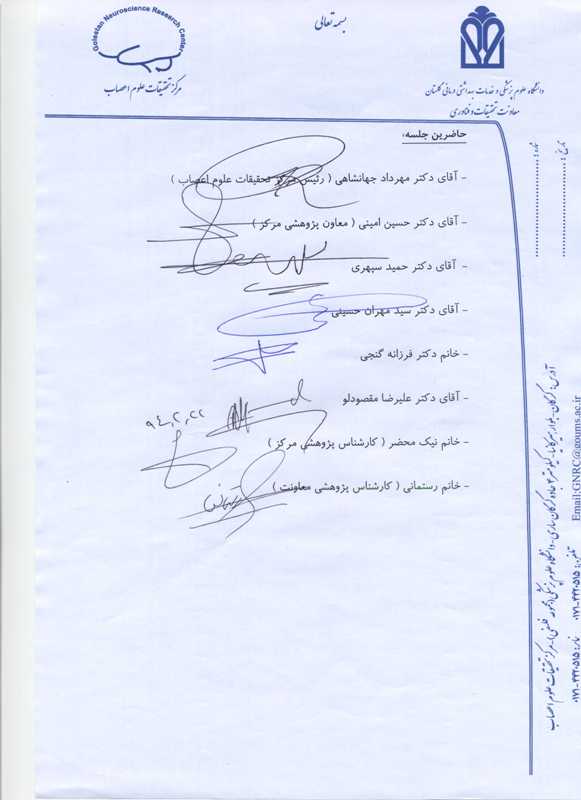 بسمه تعالی
Golestan Neuroscience Research Center
مرکز تحقیقات علوم اعصاب
دانشگاه علوم پزشکی و خدمات بهداشتی درمانی گلستان
معاونت تحقیقات و فناوری
تاریخ:
شماره:
حاضرین جلسه:
- آقای دکتر مهرداد جهانشاهی ( رئیس مرکز تحقیقات علوم اعصاب )
- آقای دکتر حسین امینی ( معاون پژوهشی مرکز )
- آقای دکتر حمید سپهری
- آقای دکتر سید مهران حسینی
- خانم دکتر فرزانه گنجی
- آقای دکتر علیرضا مقصودلو
۹۴,۲,۲۲
- خانم نیک محضر ( کارشناس پژوهشی مرکز )
- خانم رستمانی ( کارشناس پژوهشی معاونت )
آدرس: گرگان - بلوار هیرکانیا - کیلومتر ۴ جاده گرگان ساری - دانشگاه علوم پزشکی (مجموعه فلسفی) - مرکز تحقیقات علوم اعصاب
Email:GNRC@goums.ac.ir
تلفن: ۰۱۷۱-۴۴۲۰۵۱۵ نمابر: ۰۱۷۱-۴۴۲۰۵۱۵